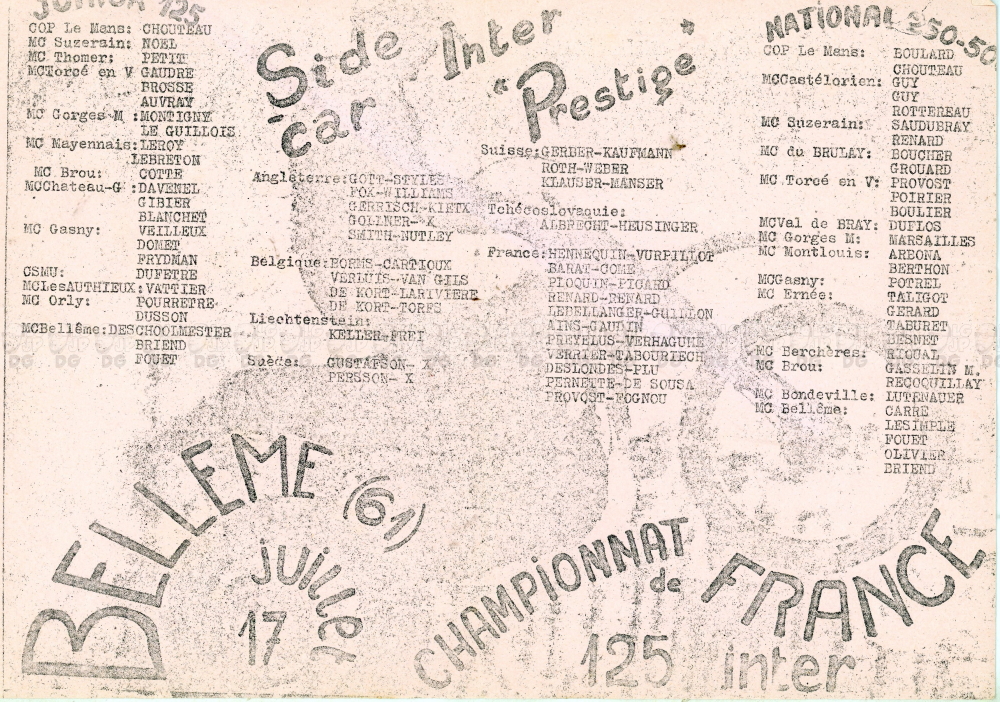 JUNIOR 125
COP Le Mans: CHOUTEAU
MC Suzerain: NOEL
MC Thomer: PETIT
MCTorcé en V GAUDRE
BROSSE
AUVRAY
MC Gorges M :MONTIGNY
LE GUILLOIS
MC Mayennais:LEROY
LEBRETON
MC Brou: COTTE
MCChateau-G :DAVENEL
GIBIER
BLANCHET
MC Gasny: VEILLEUX
DOMET
FRYDMAN
CSMU: DUFETRE
MCLesAUTHIEUX:VATTIER
MC Orly: POURRETRE
DUSSON
MCBellême:DESCHOOLMESTER
BRIEND
FOUET
Side Inter
-car "Prestige"
Angleterre:GOTT-STYLES
FOX-WILLIAMS
GERRISCH-KIETX
GOLLNER-X
SMITH-NUTLEY
Belgique:BORMS-CARTIOUX
VERLUIS-VAN GILS
DE KORT-LARIVIERE
DE KORT-TORFS
Liechtenstein:
KELLER-FREI
Suède: GUSTAFSON- X
PERSSON- X
Suisse:GERBER-KAUFMANN
ROTH-WEBER
KLAUSER-MANSER
Tchécoslovaquie:
ALBRECHT-HEUSINGER
France:HENNEQUIN-VURPILLOT
BARAT-COME
PIOQUIN-PICARD
RENARD-RENARD
LEBELLANGER-GUILLON
AINS-GAUDIN
PREVELUS-VERHAGUHE
VERRIER-TABOURIECH
DESLONDES-PLU
PERNETTE-DE SOUSA
PROVOST-FOGNOU
NATIONAL 250-50
COP Le Mans: BOULARD
CHOUTEAU
MCCastélorien: GUY
GUY
ROTTEREAU
MC Suzerain: SAUDUBRAY
RENARD
MC du BRULAY: BOUCHER
GROUARD
MC Torcé en V: PROVOST
POIRIER
BOULIER
MCVal de BRAY: DUFLOS
MC Gorges M: MARSAILLES
MC Montlouis: ARBONA
BERTHON
MCGasny: POTREL
MC Ernée: TALIGOT
GERARD
TABURET
BESNET
MC Berchères: RIOUAL
MC Brou: GASSELIN M.
RECOQUILLAY
MC Bondeville: LUTENAUER
MC Bellême: CARRE
LESIMPLE
FOUET
OLIVIER
BRIEND
BELLEME (61)
17 juillet
CHAMPIONNAT de FRANCE
125 inter